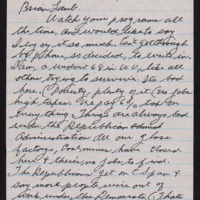 Brian Lamb.
Watch your programs all
the time, and would like to say
I enjoy it so much. Can't get through
by phone, so decided, to write in.
I am, a worker & live in W.V. like all
other, trying to survive. It's bad
here, Poverty, plenty of it. no jobs
high taxes. We pay 6% tax on
every thing. Things are always bad
under the Republican
Administration. All our
factorys, coal mines have closed
here & there is no jobs to find.
The Republicans get on C Span &
say more people were out of
work under the Democrats. (That's